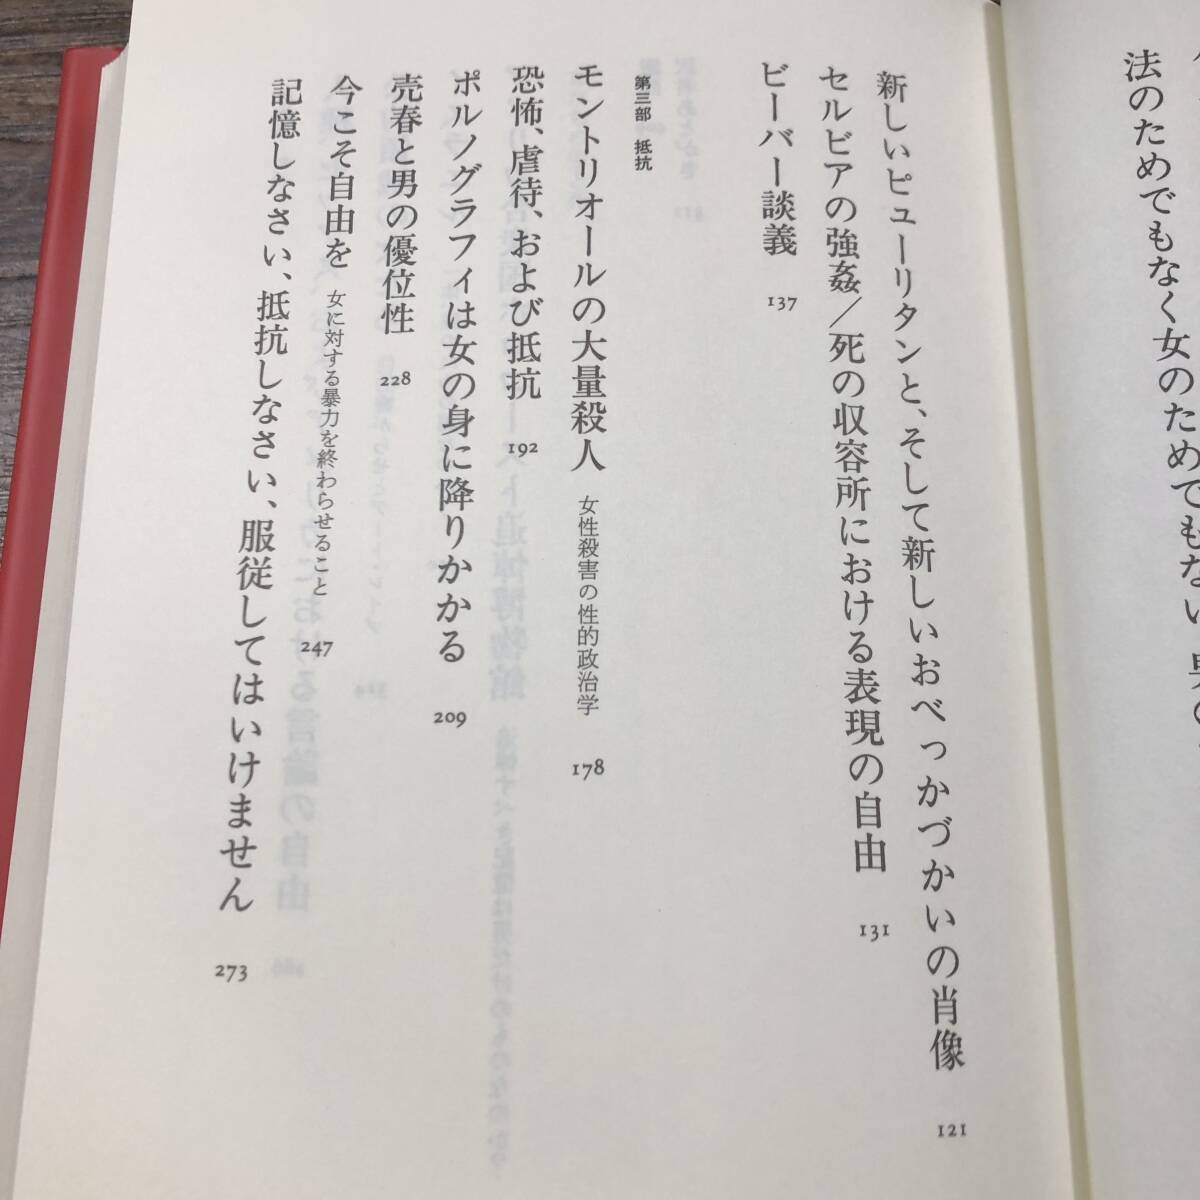 法のためでもなく女のためでもない
新しいピューリタンと、そして新しいおべっかづかいの肖像 121
セルビアの強姦/死の収容所における表現の自由 131
ビーバー談義 137
第三部 抵抗
モントリオールの大量殺人 女性殺害の性的政治学 178
恐怖、虐待、および抵抗 192
ポルノグラフィは女の身に降りかかる 209
売春と男の優位性 228
今こそ自由を 女に対する暴力を終わらせること 247
記憶しなさい、抵抗しなさい、服従してはいけません 273